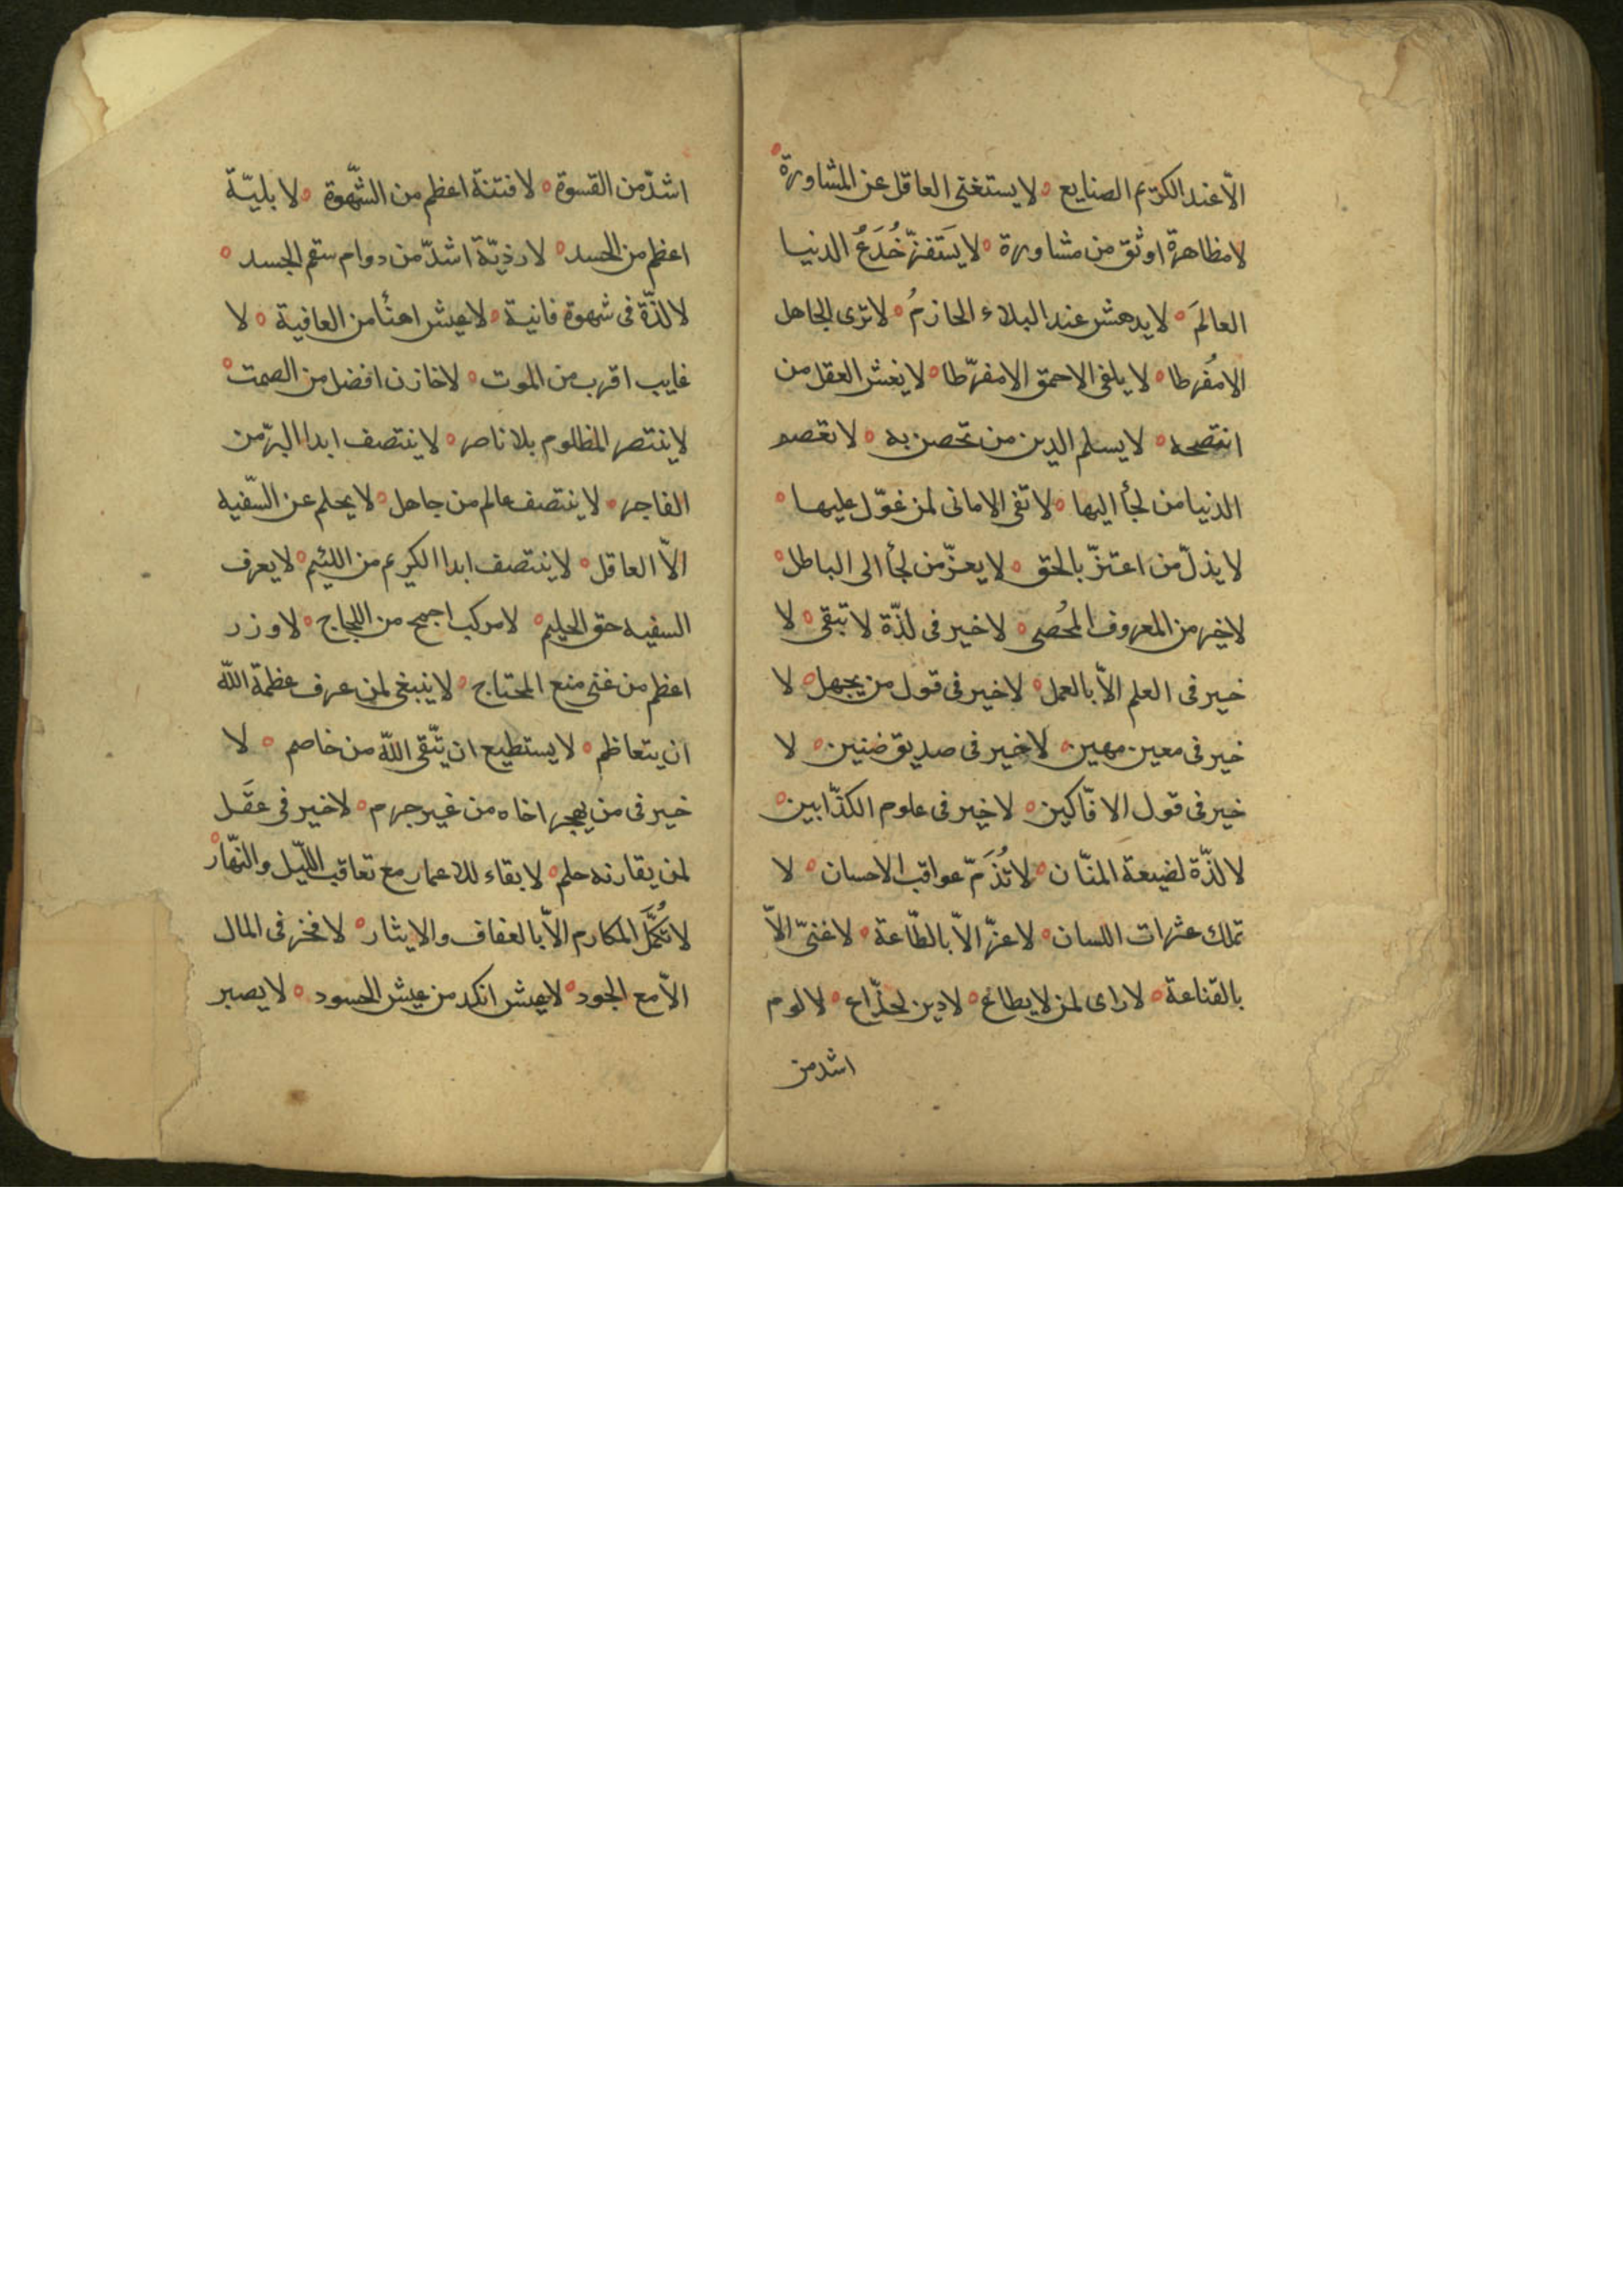 الّا عند الكريم الصنايع ٥ لا يستغنى العاقل عن المشاورة ٥
لا مظاهرة اوثق من مشاورة ٥ لا يَستَفزّ خُدَعُ الدنيا
العالمَ ٥ لا يدهش عند البلاء الحازمُ ٥ لا ترى الجاهل
الا مُفرطا ٥ لا يلفى الاحمق الا مفرّطا ٥ لا يغش العقل من
انتصحه ٥ لا يسلم الدين من تحصن به ٥ لا تعصم
الدنيا من لجأ اليها ٥ لا تفى الامانى لمن عوّل عليها ٥
لا يذلّ من اعتزّ بالحق ٥ لا يعزّ من لجأ الى الباطل ٥
لا خير من المعروف المُحصى ٥ لا خير فى لذّة لا تبقى ٥ لا
خير فى العلم الّا بالعمل ٥ لا خير فى قول من يجهل ٥ لا
خير فى معين مهين ٥ لا خير فى صديق ضنين ٥ لا
خير فى قول الافّاكين ٥ لا خير فى علوم الكذّابين ٥
لا لذّة لضيعة المنّان ٥ لا تُذَمّ عواقب الاحسان ٥ لا
تملك عثرات اللسان ٥ لا عزّ الّا بالطّاعة ٥ لا غنىّ الّا
بالقناعة ٥ لا راى لمن لا يطاع ٥ لا دين لخدّاع ٥ لا لوم
اشد من
اشدّ من القسوة ٥ لا فتنة اعظم من الشّهوة ٥ لا بليّة
اعظم من الحسد ٥ لا رذيّة اشدّ من دوام سقم الجسد ٥
لا لذّة فى شهوة فانية ٥ لا عيش اهنأ من العافية ٥ لا
غايب اقرب من الموت ٥ لا خازن افضل من الصمت ٥
لا ينتصر المظلوم بلا ناصر ٥ لا ينتصف ابدا البرّ من
الفاجر ٥ لا ينتصف عالم من جاهل ٥ لا يحلم عن السّفيه
الّا العاقل ٥ لا ينتصف ابدا الكريم من اللئيم ٥ لا يعرف
السفيه حق الحليم ٥ لا مركب اجمح من اللجاج ٥ لا وزر
اعظم من غنى منع المحتاج ٥ لا ينبغى لمن عرف عظمة اللّه
ان يتعاظم ٥ لا يستطيع ان يتّقى اللّه من خاصم ٥ لا
خير فى من يهجر اخاه من غير جرم ٥ لا خير فى عقَل
لمن يقارنه حلم ٥ لا بقاء للاعمار مع تعاقب اللّيل والنّهار ٥
لا تُكمَّل المكارم الّا بالعفاف والايثار ٥ لا فخر فى المال
الّا مع الجود ٥ لا عيش انكد من عيش الحسود ٥ لا يصبر